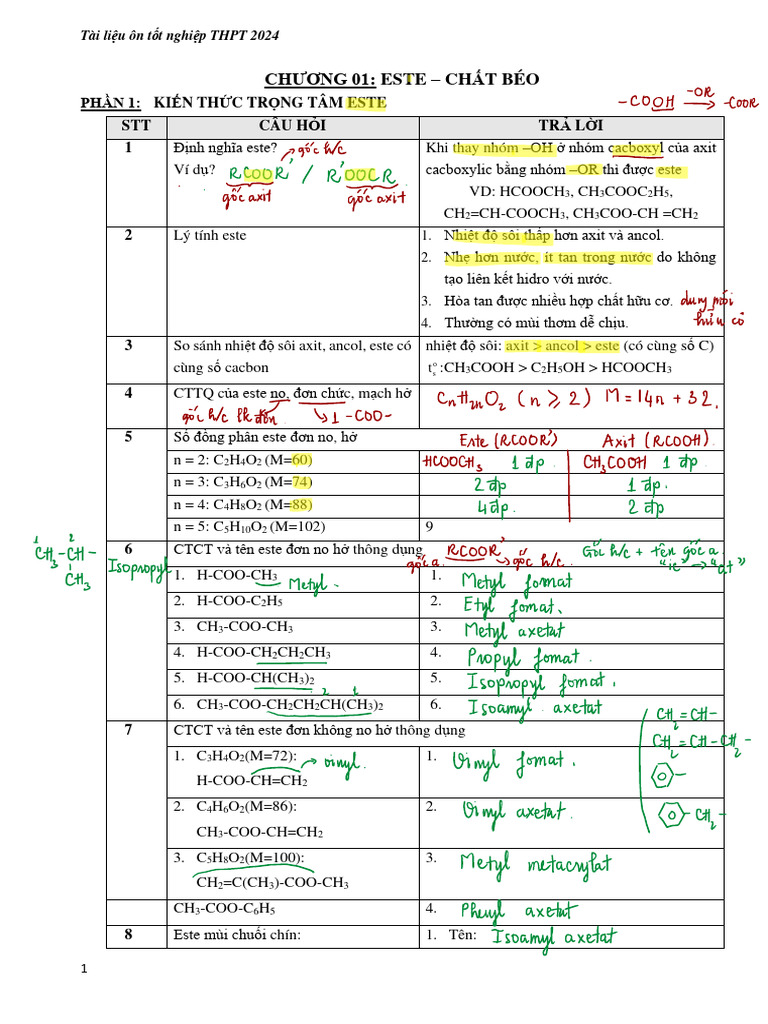 Tài liệu ôn tốt nghiệp THPT 2024
CHƯƠNG 01: ESTE – CHẤT BÉO
PHẦN 1: KIẾN THỨC TRỌNG TÂM ESTE
-COOH -OR → -COOR
STT CÂU HỎI TRẢ LỜI
1 Định nghĩa este? → gốc h/c
Ví dụ? RCOOR' / R'OOCR
gốc axit gốc axit
Khi thay nhóm –OH ở nhóm cacboxyl của axit
cacboxylic bằng nhóm –OR thì được este
VD: HCOOCH3, CH3COOC2H5,
CH2=CH-COOCH3, CH3COO-CH =CH2
2 Lý tính este
1. Nhiệt độ sôi thấp hơn axit và ancol.
2. Nhẹ hơn nước, ít tan trong nước do không
tạo liên kết hidro với nước.
3. Hòa tan được nhiều hợp chất hữu cơ. dung môi
hữu cơ
4. Thường có mùi thơm dễ chịu.
3 So sánh nhiệt độ sôi axit, ancol, este có
cùng số cacbon
nhiệt độ sôi: axit > ancol > este (có cùng số C)
t°s:CH3COOH > C2H5OH > HCOOCH3
4 CTTQ của este no, đơn chức, mạch hở
gốc h/c lk đơn → 1 -COO-
CnH2nO2 (n ≥ 2) M = 14n + 32.
5 Số đồng phân este đơn no, hở
Este (RCOOR') Axit (RCOOH)
n = 2: C2H4O2 (M=60) HCOOCH3 1 đp CH3COOH 1 đp
n = 3: C3H6O2 (M=74) 2 đp 1 đp
n = 4: C4H8O2 (M=88) 4 đp 2 đp
n = 5: C5H10O2 (M=102) 9
1 2
CH3-CH-
CH3
Isopropyl
6 CTCT và tên este đơn no hở thông dụng
gốc a. RCOOR' → gốc h/c. Gốc h/c + tên gốc a
"ic" → "at"
1. H-COO-CH3 Metyl. 1. Metyl fomat
2. H-COO-C2H5 2. Etyl fomat.
3. CH3-COO-CH3 3. Metyl axetat
4. H-COO-CH2CH2CH3 4. Propyl fomat.
5. H-COO-CH(CH3)2 5. Isopropyl fomat.
2 1
6. CH3-COO-CH2CH2CH(CH3)2 6. Isoamyl axetat
7 CTCT và tên este đơn không no hở thông dụng
CH2=CH-
CH2=CH-CH2-
-CH2-
1. C3H4O2(M=72): → vinyl. 1. Vinyl fomat.
H-COO-CH=CH2
2. C4H6O2(M=86): 2. Vinyl axetat.
CH3-COO-CH=CH2
3. C5H8O2(M=100): 3. Metyl metacrylat
CH2=C(CH3)-COO-CH3
CH3-COO-C6H5 4. Phenyl axetat
8 Este mùi chuối chín: 1. Tên: Isoamyl axetat
1